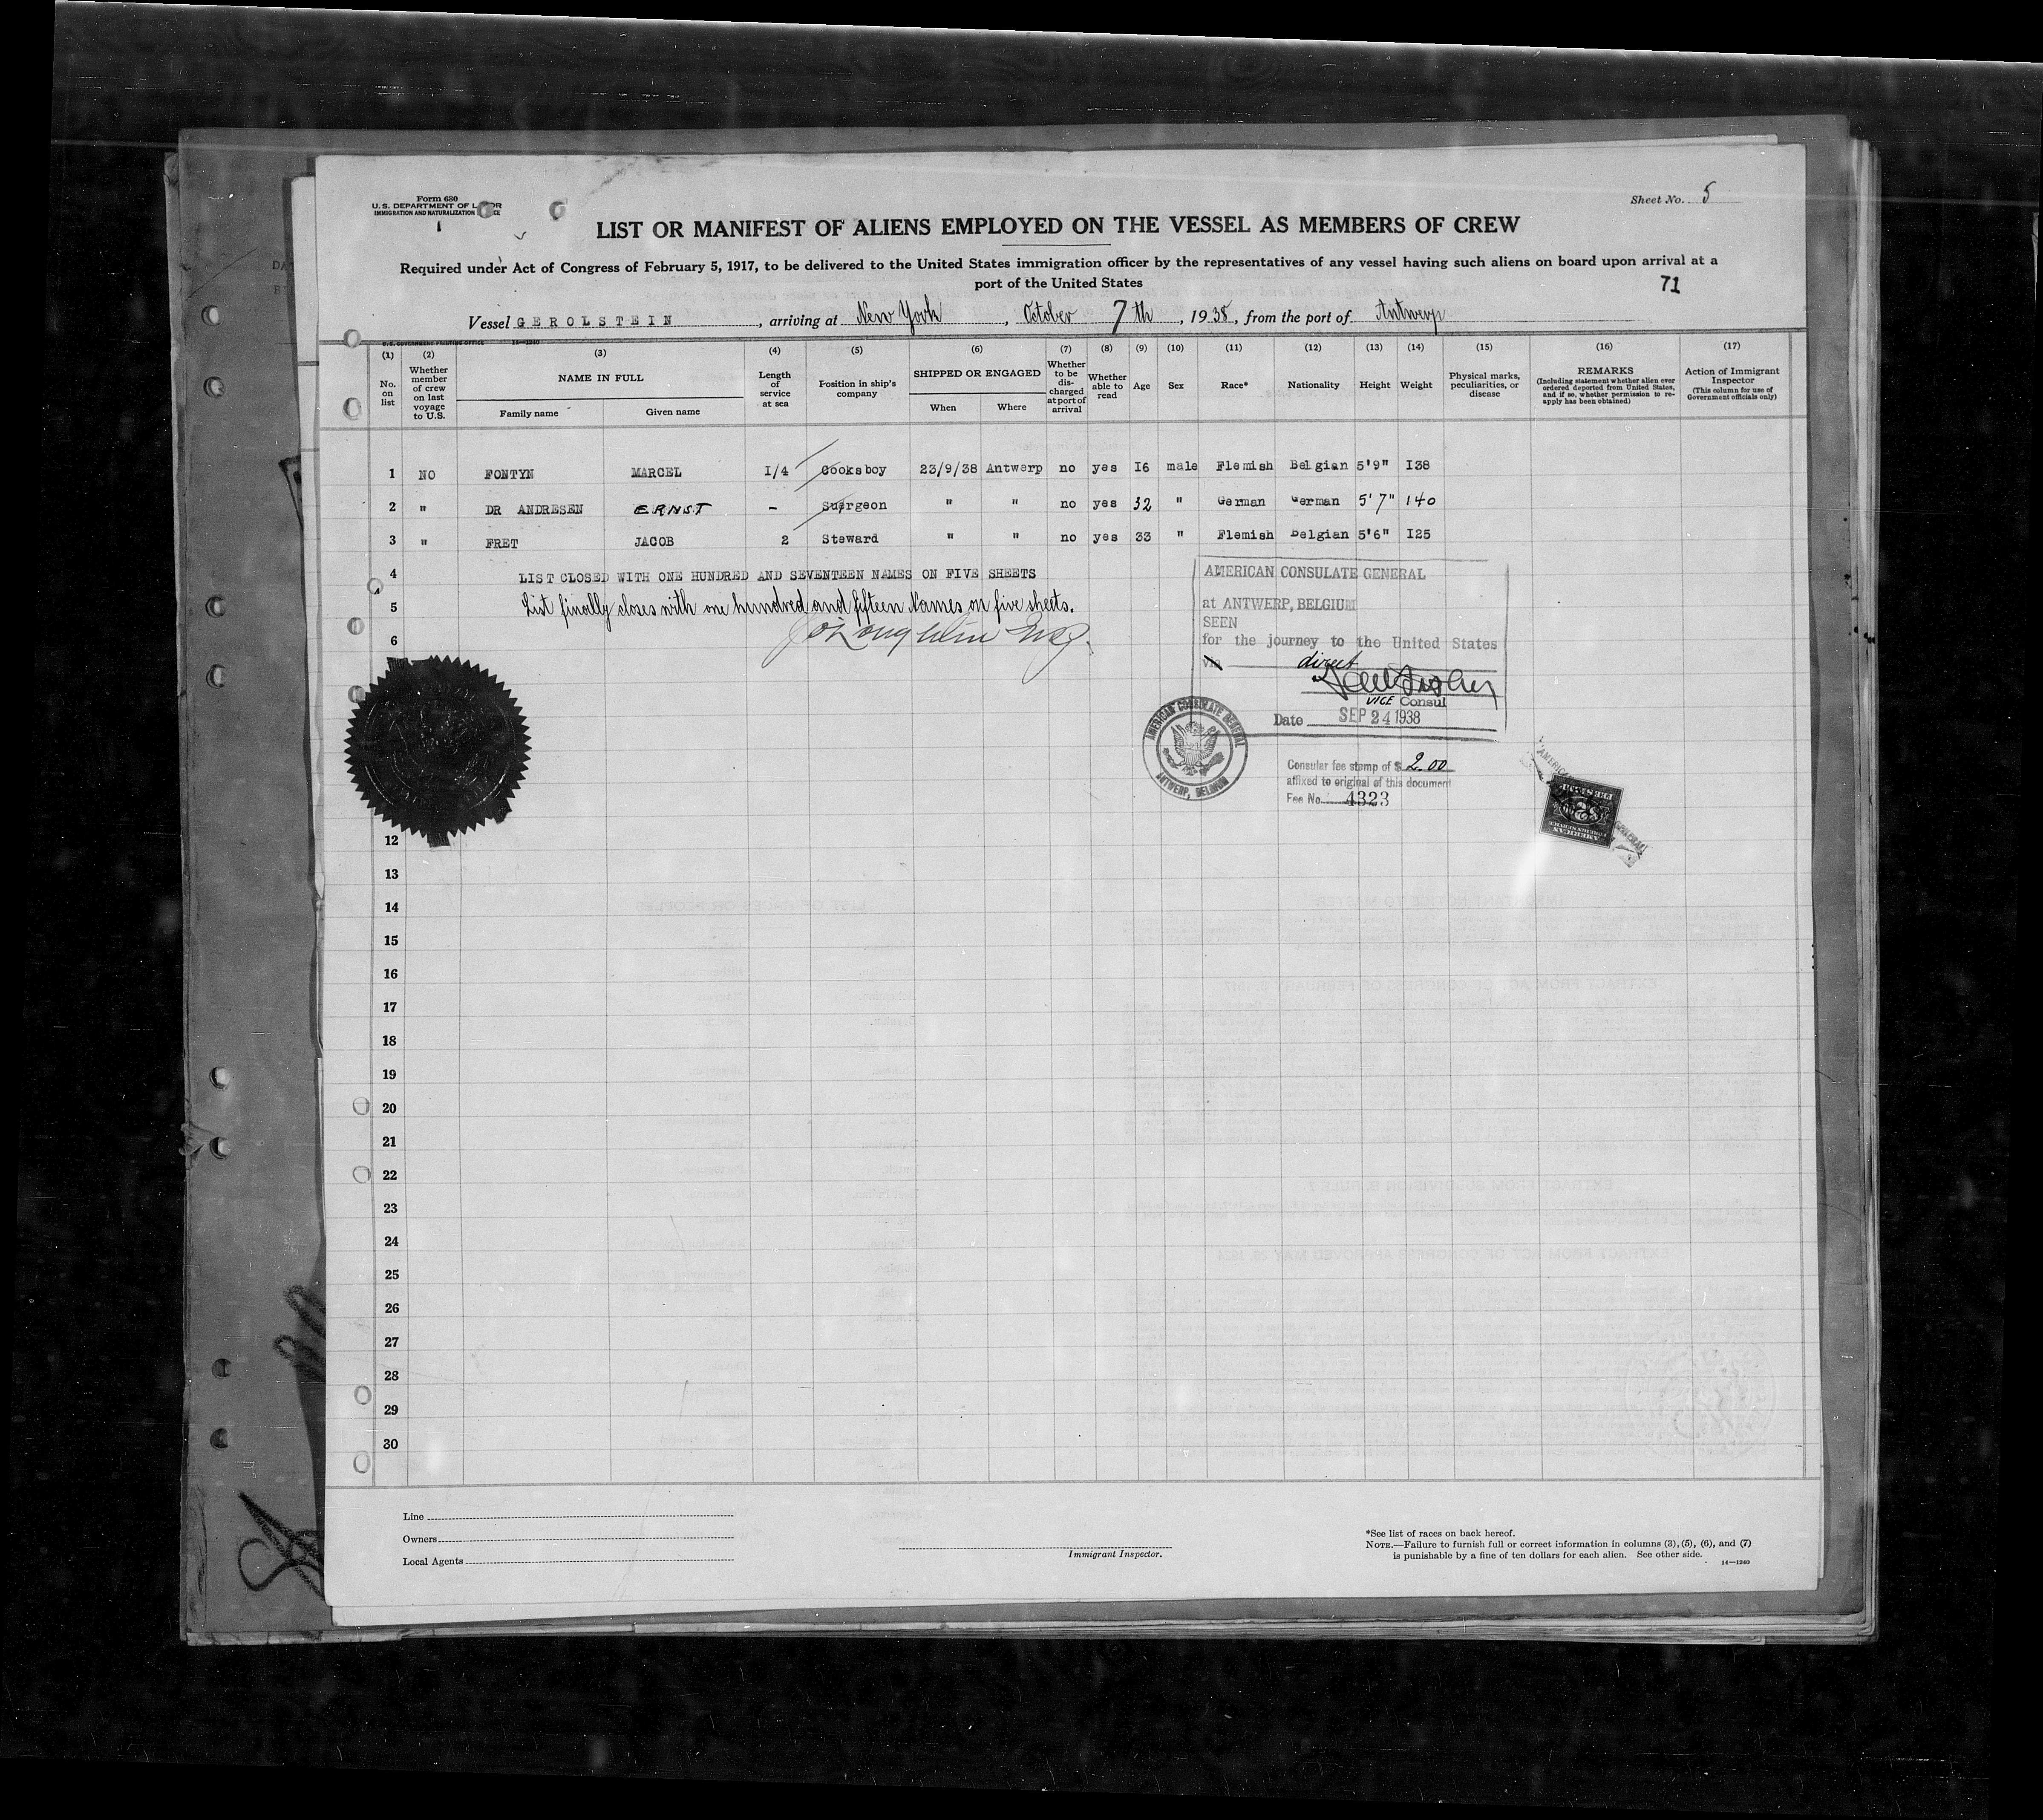 Form 680
U. S. DEPARTMENT OF LABOR
IMMIGRATION AND NATURALIZATION
Sheet No. 5
LIST OR MANIFEST OF ALIENS EMPLOYED ON THE VESSEL AS MEMBERS OF CREW
Required under Act of Congress of February 5, 1917, to be delivered to the United States immigration officer by the representatives of any vessel having such aliens on board upon arrival at a
port of the United States
71
Vessel GEROLSTEIN, arriving at New York, October 7th, 1938, from the port of Antwerp
(1) (2) (3) (4) (5) (6) (7) (8) (9) (10) (11) (12) (13) (14) (15) (16) (17)
No. on list
Whether member of crew on last voyage to U.S.
NAME IN FULL
Family name
Given name
Length of service at sea
Position in ship's company
SHIPPED OR ENGAGED
When
Where
Whether to be discharged at port of arrival
Whether able to read
Age
Sex
Race*
Nationality
Height
Weight
Physical marks, peculiarities, or disease
REMARKS
(Including statement whether alien ever ordered deported from United States, and if so, whether permission to reapply has been obtained)
Action of Immigrant Inspector
(This column for use of Government officials only)
1 NO FONTYN MARCEL I/4 Cooksboy 23/9/38 Antwerp no yes I6 male Flemish Belgian 5'9" I38
2 " DR ANDRESEN ERNST - Suergeon " " no yes 32 " German German 5'7" 140
3 " FRET JACOB 2 Steward " " no yes 33 " Flemish Belgian 5'6" I25
4 LIST CLOSED WITH ONE HUNDRED AND SEVENTEEN NAMES ON FIVE SHEETS
5 List finally closes with one hundred and fifteen Names on five sheets.
6
AMERICAN CONSULATE GENERAL
at ANTWERP, BELGIUM
SEEN
for the journey to the United States
via direct
VICE Consul
Date SEP 24 1938
AMERICAN CONSULATE GENERAL
ANTWERP, BELGIUM
Consular fee stamp of $ 2.00
affixed to original of this document
Fee No. 4323
12
13
14
15
16
17
18
19
20
21
22
23
24
25
26
27
28
29
30
Line
Owners
Local Agents
Immigrant Inspector.
*See list of races on back hereof.
NOTE.—Failure to furnish full or correct information in columns (3), (5), (6), and (7)
is punishable by a fine of ten dollars for each alien. See other side.
14—1240